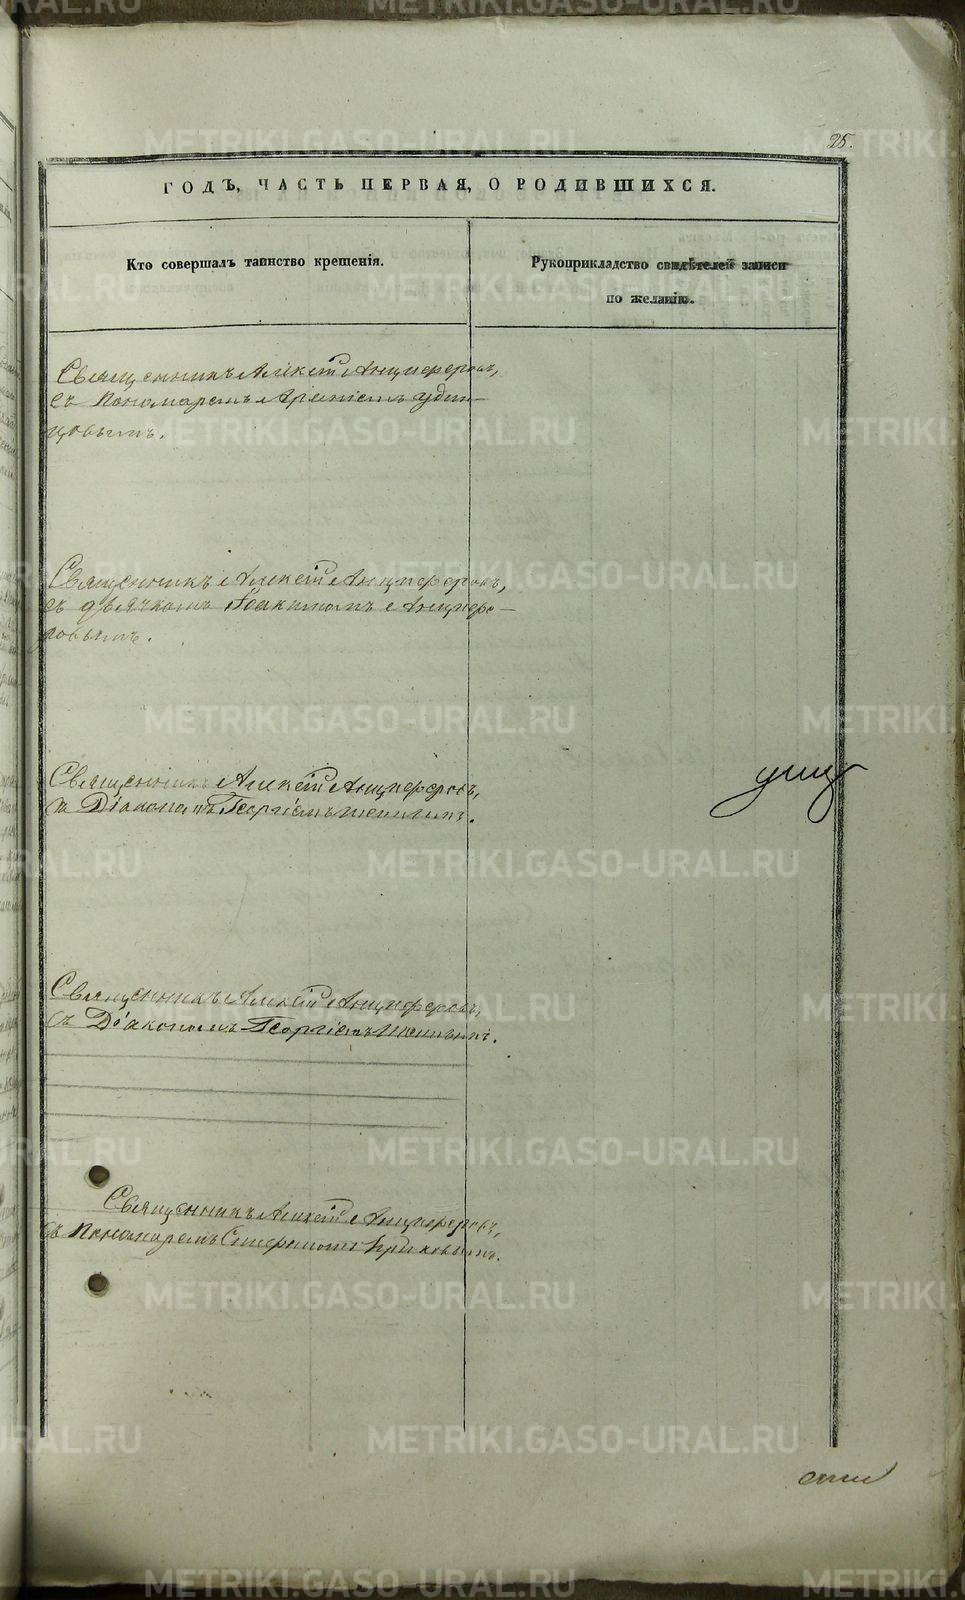 25.
ГОДЪ, ЧАСТЬ ПЕРВАЯ, О РОДИВШИХСЯ.
Кто совершалъ таинство крещенія.
Рукоприкладство свидѣтелей записи
по желанію.
Священникъ Алексій Анциферовъ,
съ Пономаремъ Арсеніемъ Удин-
цовымъ.
Священникъ Алексій Анциферовъ,
съ дьячкомъ Іоакимомъ Анцифе-
ровымъ.
Священникъ Алексій Анциферовъ,
съ Діакономъ Георгіемъ
Священникъ Алексій Анциферовъ,
съ Діакономъ Георгіемъ
Священникъ Алексій Анциферовъ,
съ Пономаремъ Стефаномъ
METRIKI.GASO-URAL.RU